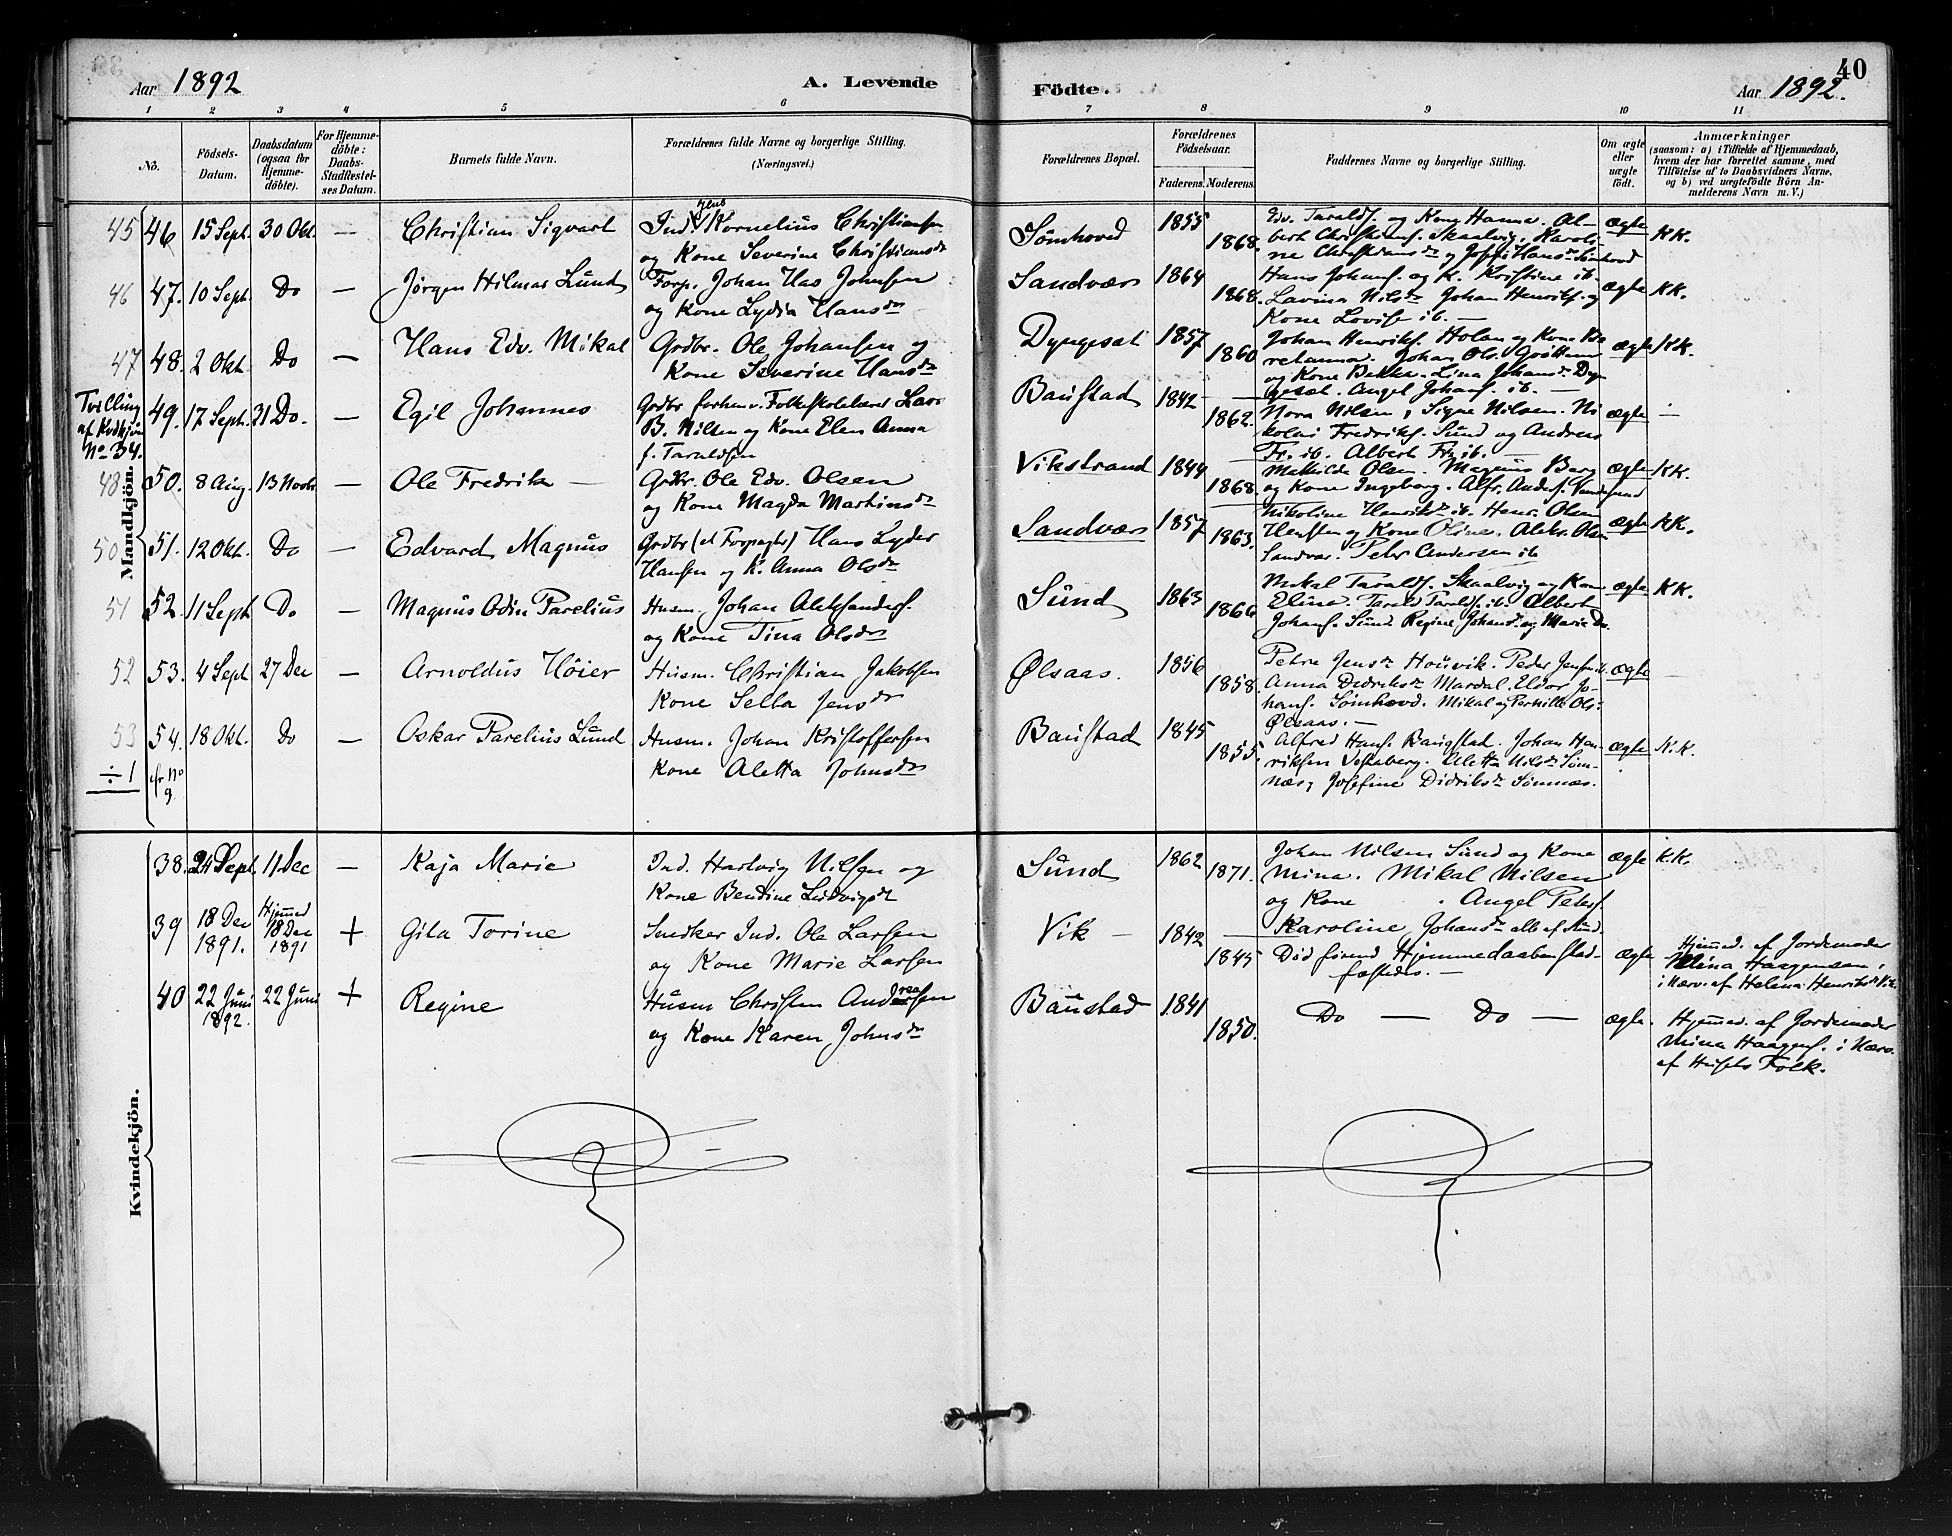 Aar 1892
A. Levende
Födte.
40
Aar 1892.
1 2 3 4 5 6 7 8 9 10 11
No.
Födsels-Datum.
Daabsdatum (ogsaa for Hjemme-döbte).
For Hjemme-döbte: Daabs-Stadfestel-ses Datum.
Barnets fulde Navn.
Forældrenes fulde Navne og borgerlige Stilling.
(Næringsvei.)
Forældrenes Bopæl.
Forældrenes Födselsaar.
Faderens. Moderens.
Faddernes Navne og borgerlige Stilling.
Om ægte eller uægte födt.
Anmærkninger
(saasom: a) i Tilfælde af Hjemmedaab,
hvem der har forrettet samme, med
Tilföielse af to Daabsvidners Navne,
og b) ved uægtefödte Börn An-
melderens Navn m. V.)
Mandkjön.
45 46 15 Sept. 30 Okt. — Christian Sigvart
Ind. Jens Kornelius Christiansen
og Kone Severine Christiansdr
Sömhoved 1855 1868.
Edv. Taraldf. og Kone Hanna. Al-
bert Christianf. Skaalvig. Karoli-
ne Christiansdr og Hansdr
ægte KK.
46 47. 10 Sept. Do — Jörgen Hilmar Lund
Forp. Johan Johnsen
og Kone Lydia Hansdr
Sandvær 1864 1868.
Hans Johanf. og K. Kristine ib.
Lavina Nilsdr Johan Henrikf. og
Kone Lovise ib. —
ægte KK.
47 48. 2 Okt. Do — Hans Edv. Mikal
Grdbr. Ole Johansen og
Kone Severine Hansdr
Dyngesæt 1857 1860
Johan Henrikf. Holan og Kone Be
retanna. Johan Ols.
og Kone Lina Johansdr Dyn
gesæt. Angel Johanf. ib. —
ægte KK.
Tvilling
af Kvdkjön
No 34.
49. 17 Sept. 31 Do. — Egil Johannes
Grdbr forhenv. Folkeskolelærer Lars
B. Nilsen og Kone Elen Anna
f. Taraldsen
Baustad 1842 1862.
Nora Nilsen, Signe Nilsen. Ni
kolai Fredrikf. Sund og Andreas
Fr. ib. Albert Fr. ib. —
ægte —
48 50. 8 Aug. 13 Novbr — Ole Fredrik —
Grdbr. Ole Edv. Olsen
og Kone Magda Martinsdr
Vikstrand 1844 1868.
Mathilde Olsen. Magnus Berg
og Kone Ingeborg. Alfr. Andersf.
ægte KK.
50 51. 12 Okt. Do — Edvard Magnus
Grdbr (et Forpagter) Hans Lyder
Hansen og K. Anna Olsdr
Sandvær 1857 1863.
Nikoline Henriksdr ib. Henr. Olsen
og Kone Oline. Aleks. Olsen
Sandvær. Peter Andersen ib
ægte KK.
51 52. 11 Sept Do — Magnus Odin Parelius
Husm. Johan Aleksandersf.
og Kone Tina Olsdr
Sund 1863 1866
Mikal Taraldf. Skaalvig og Kone
Eline. Tarald Taraldf. ib. Albert
Johanf. Sund Regine Johansdr og Marie Do.
ægte KK.
52 53. 4 Sept 27 Dec — Arnoldus Höier
Husm. Christian Jakobsen
Kone Sella Jensdr
Ølsaas. 1856 1858.
Petra Jensdr Houvik. Peder Jensen ib.
Anna Didriksdr Mardal. Eldor Jo-
hanf. Sömhoved. Mikal og Pernille Ols.
Ølsaas. —
ægte —
53 54. 18 Okt. Do — Oskar Parelius Lund
Husm. Johan Kristoffersen
Kone Aletta Johnsdr
Baustad 1845 1855
Alfred Hanf. Baugstad. Johan Hen-
riksen Aletta Nilsdr Söm-
næs, Josefine Didriksdr Sömnæs.
ægte N.K.
÷1 cfr No 9.
Kvindekjön.
38. 24 Sept. 11 Dec — Kaja Marie
Ind. Hartvig Nilsen og
Kone Bendine Ludvigsdr
Sund 1862 1871.
Johan Nilsen Sund og Kone
Mina. Mikal Nilsen
og Kone . Angel Petersf.
Karoline Johansdr alle af Sund.
ægte K.K.
39 18 Dec 1891. Hjemmed 18 Dec 1891 + Gila Torine
Snedker Ind. Ole Larsen
og Kone Marie Larsen
Vik — 1842 1845
Död förend Hjemmedaaben stad-
fæstedes. —
ægte
Hjemmed. af Jordemoder
Mina Haagensen,
i Nærv. af Helena Henriksdr Vik
40 22 Juni 1892. 22 Juni + Regine
Husm Christen Andreassen
og Kone Karen Johnsdr
Baustad 1841 1850.
Do — Do —
ægte.
Hjemmed. af Jordemoder
Mina Haagenf. i Nærv.
af Husets Folk.